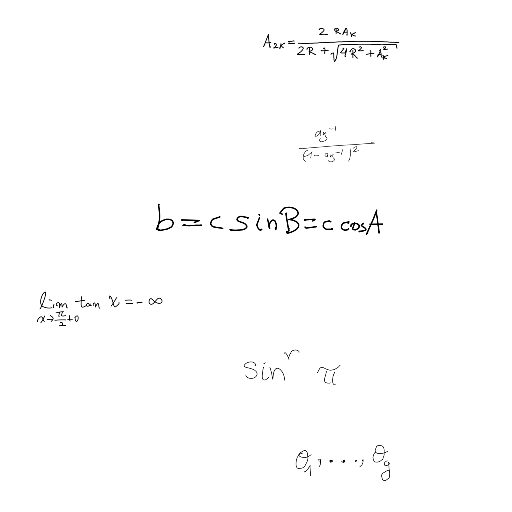 A_{2K} = \frac{2RA_K}{2R + \sqrt{4R^2 + A_K^2}}
\frac{az^{-1}}{(1 - az^{-1})^2}
b = c sin B = c cos A
\lim_{x \to \frac{\pi}{2} + 0} \tan x = -\infty
\sin^r \pi
\theta_1, \ldots, \theta_g